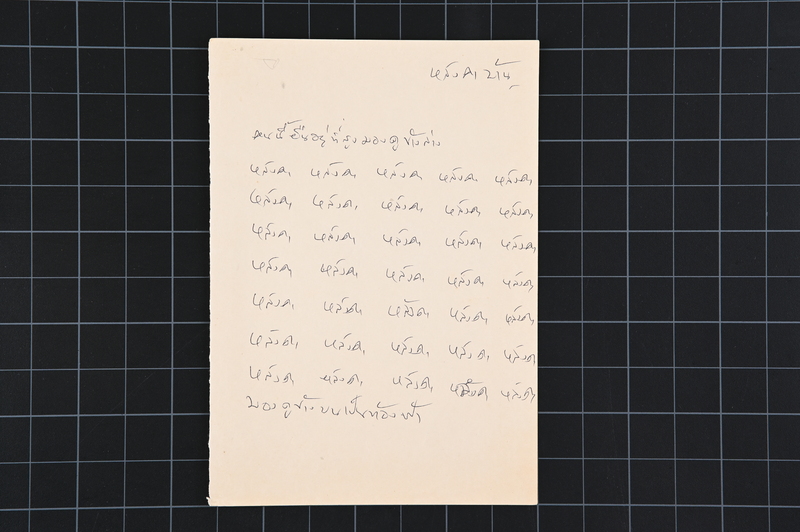 หลังคาบ้าน
คนนี้ยืนอยู่ที่สูงมองดูข้างล่าง
หลังคา หลังคา หลังคา หลังคา หลังคา
หลังคา หลังคา หลังคา หลังคา หลังคา
หลังคา หลังคา หลังคา หลังคา หลังคา
หลังคา หลังคา หลังคา หลังคา หลังคา
หลังคา หลังคา หลังคา หลังคา หลังคา
หลังคา หลังคา หลังคา หลังคา หลังคา
หลังคา หลังคา หลังคา หลังคา หลังคา
มองดูข้างบนเป็นท้องฟ้า